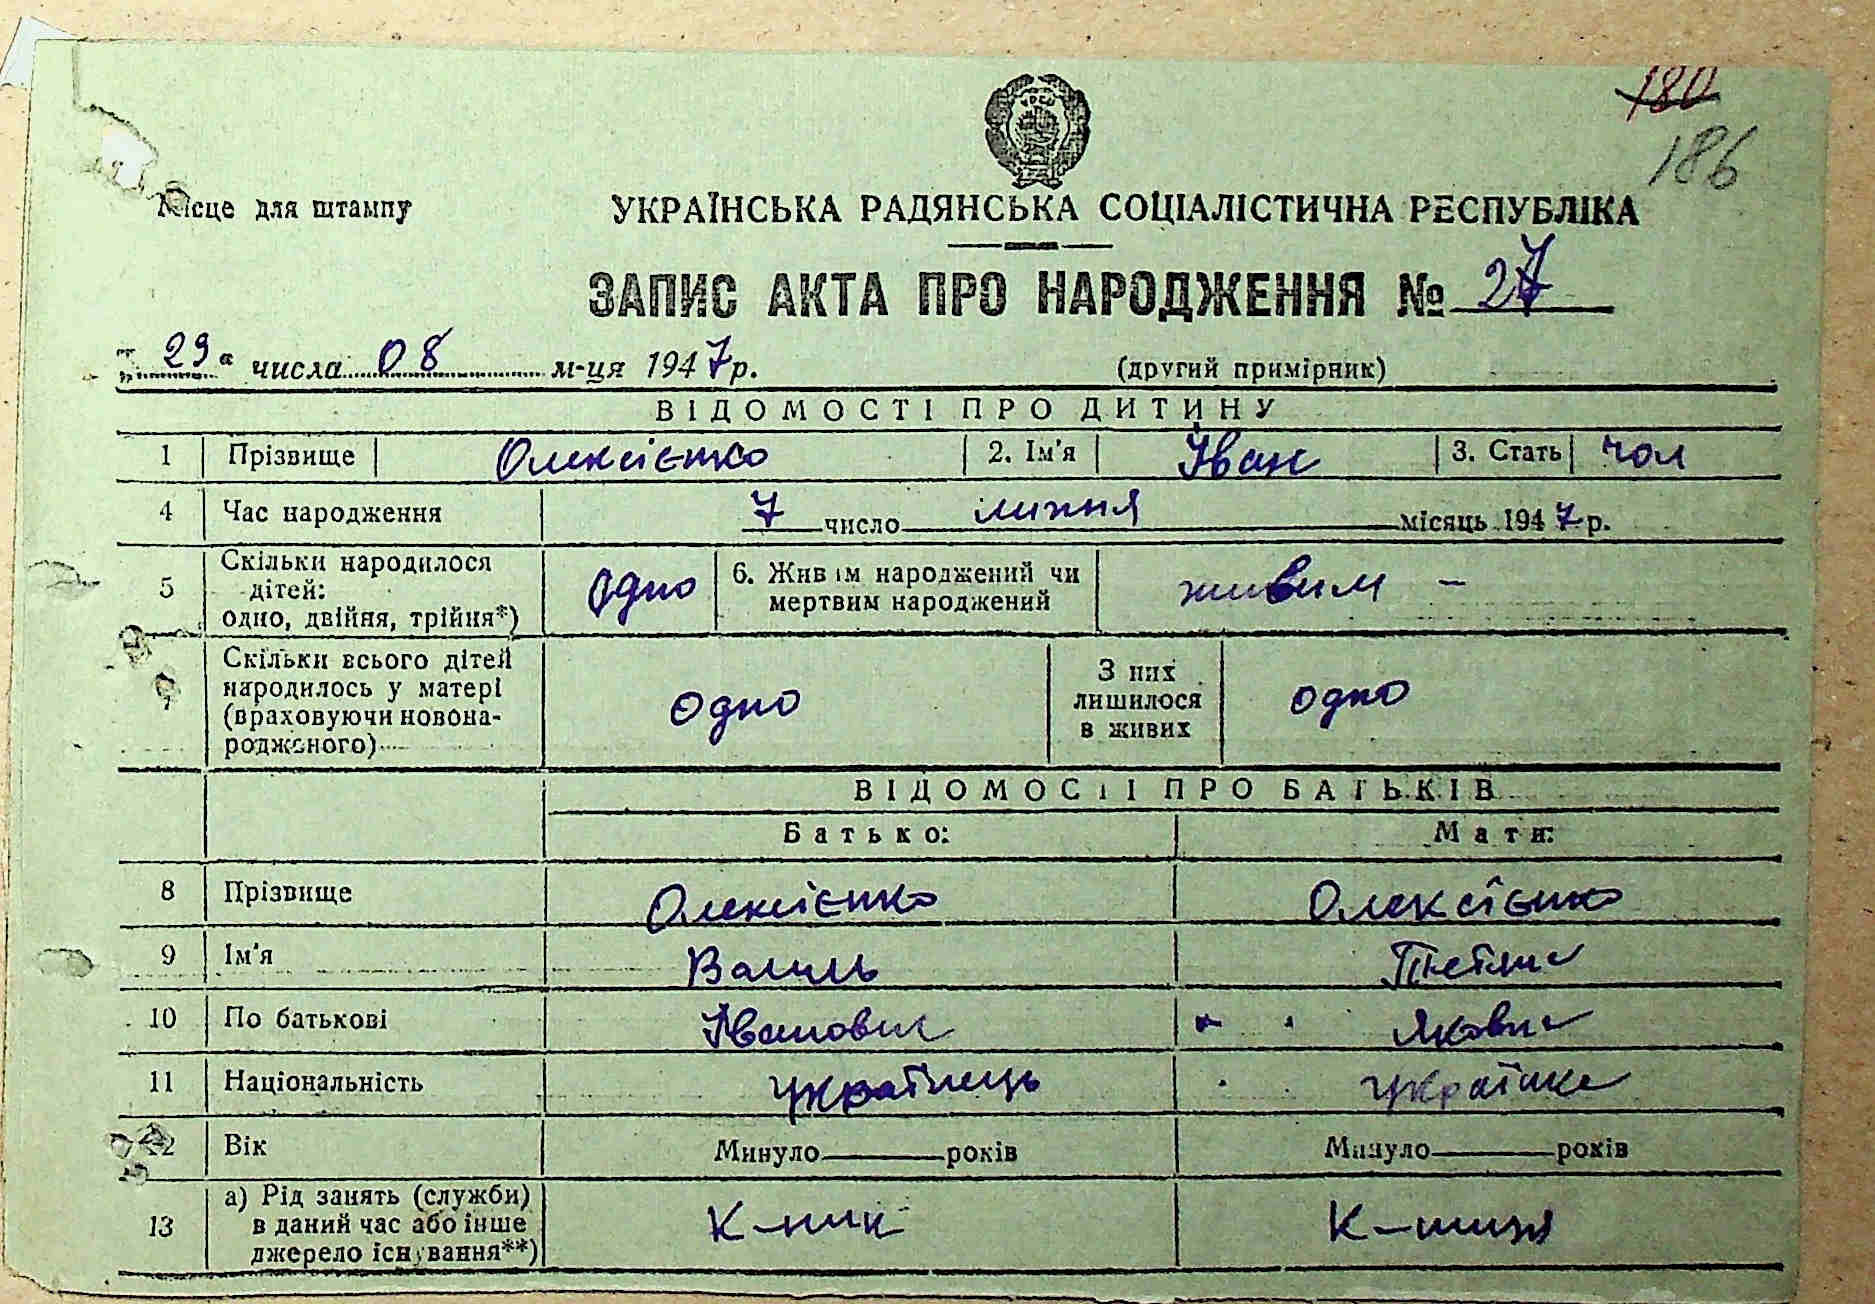 180
186
Місце для штампу
УКРАЇНСЬКА РАДЯНСЬКА СОЦІАЛІСТИЧНА РЕСПУБЛІКА
ЗАПИС АКТА ПРО НАРОДЖЕННЯ № 27
„29“ числа 08 м-ця 1947 р. (другий примірник)
ВІДОМОСТІ ПРО ДИТИНУ
1 Прізвище Олексієнко 2. Ім'я Іван 3. Стать чол
4 Час народження 7 число липня місяць 1947 р.
5 Скільки народилося дітей: одно, двійня, трійня*) одно 6. Живим народжений чи мертвим народжений живим –
7 Скільки всього дітей народилось у матері (враховуючи новонародженого) одно З них лишилося в живих одно
ВІДОМОСТІ ПРО БАТЬКІВ
Батько: Мати:
8 Прізвище Олексієнко Олексієнко
9 Ім'я Василь
10 По батькові Іванович Яковна
11 Національність українець українка
12 Вік Минуло років Минуло років
13 а) Рід занять (служби) в даний час або інше джерело існування**) К-ник К-ниця